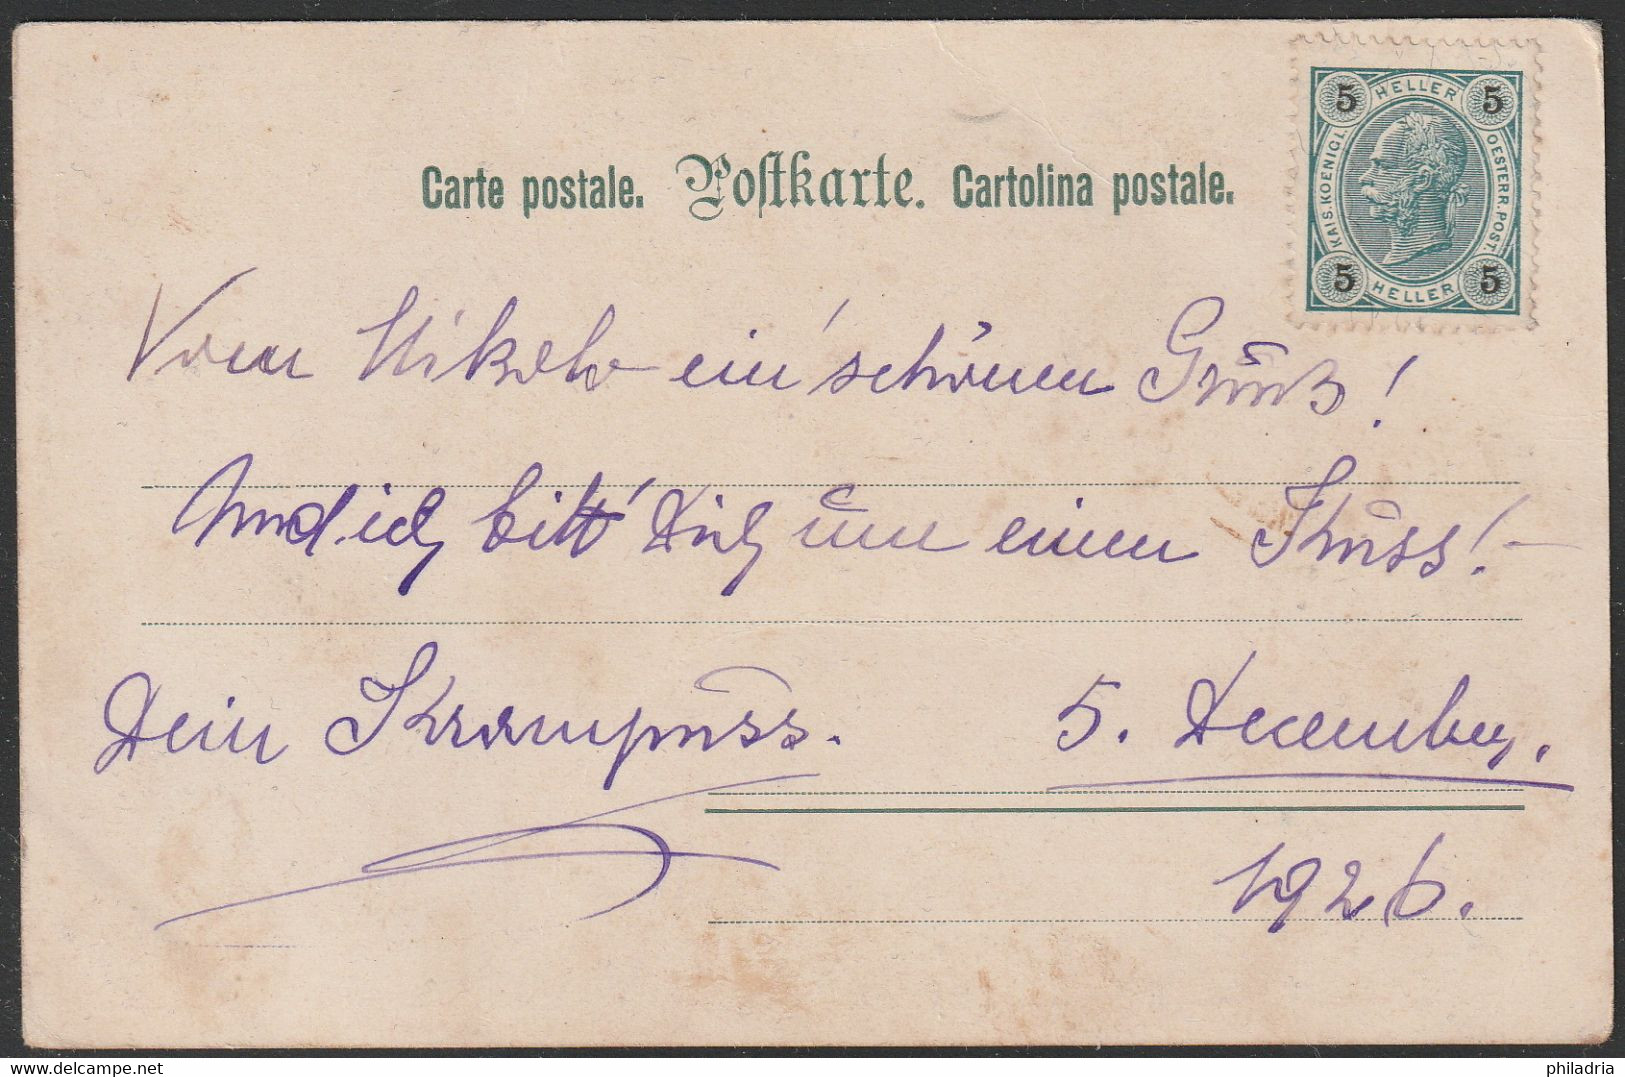 Carte postale. Postkarte. Cartolina postale.
5 HELLER 5
KAIS. KOENIGL. OESTERR. POST.
5 HELLER 5
Vom Nikolo ein' schönen Gruß!
Und ich bitt' Dich um einen Kuss! –
Dein Krampuss. 5. December.
1926.
delcampe.net
philadria